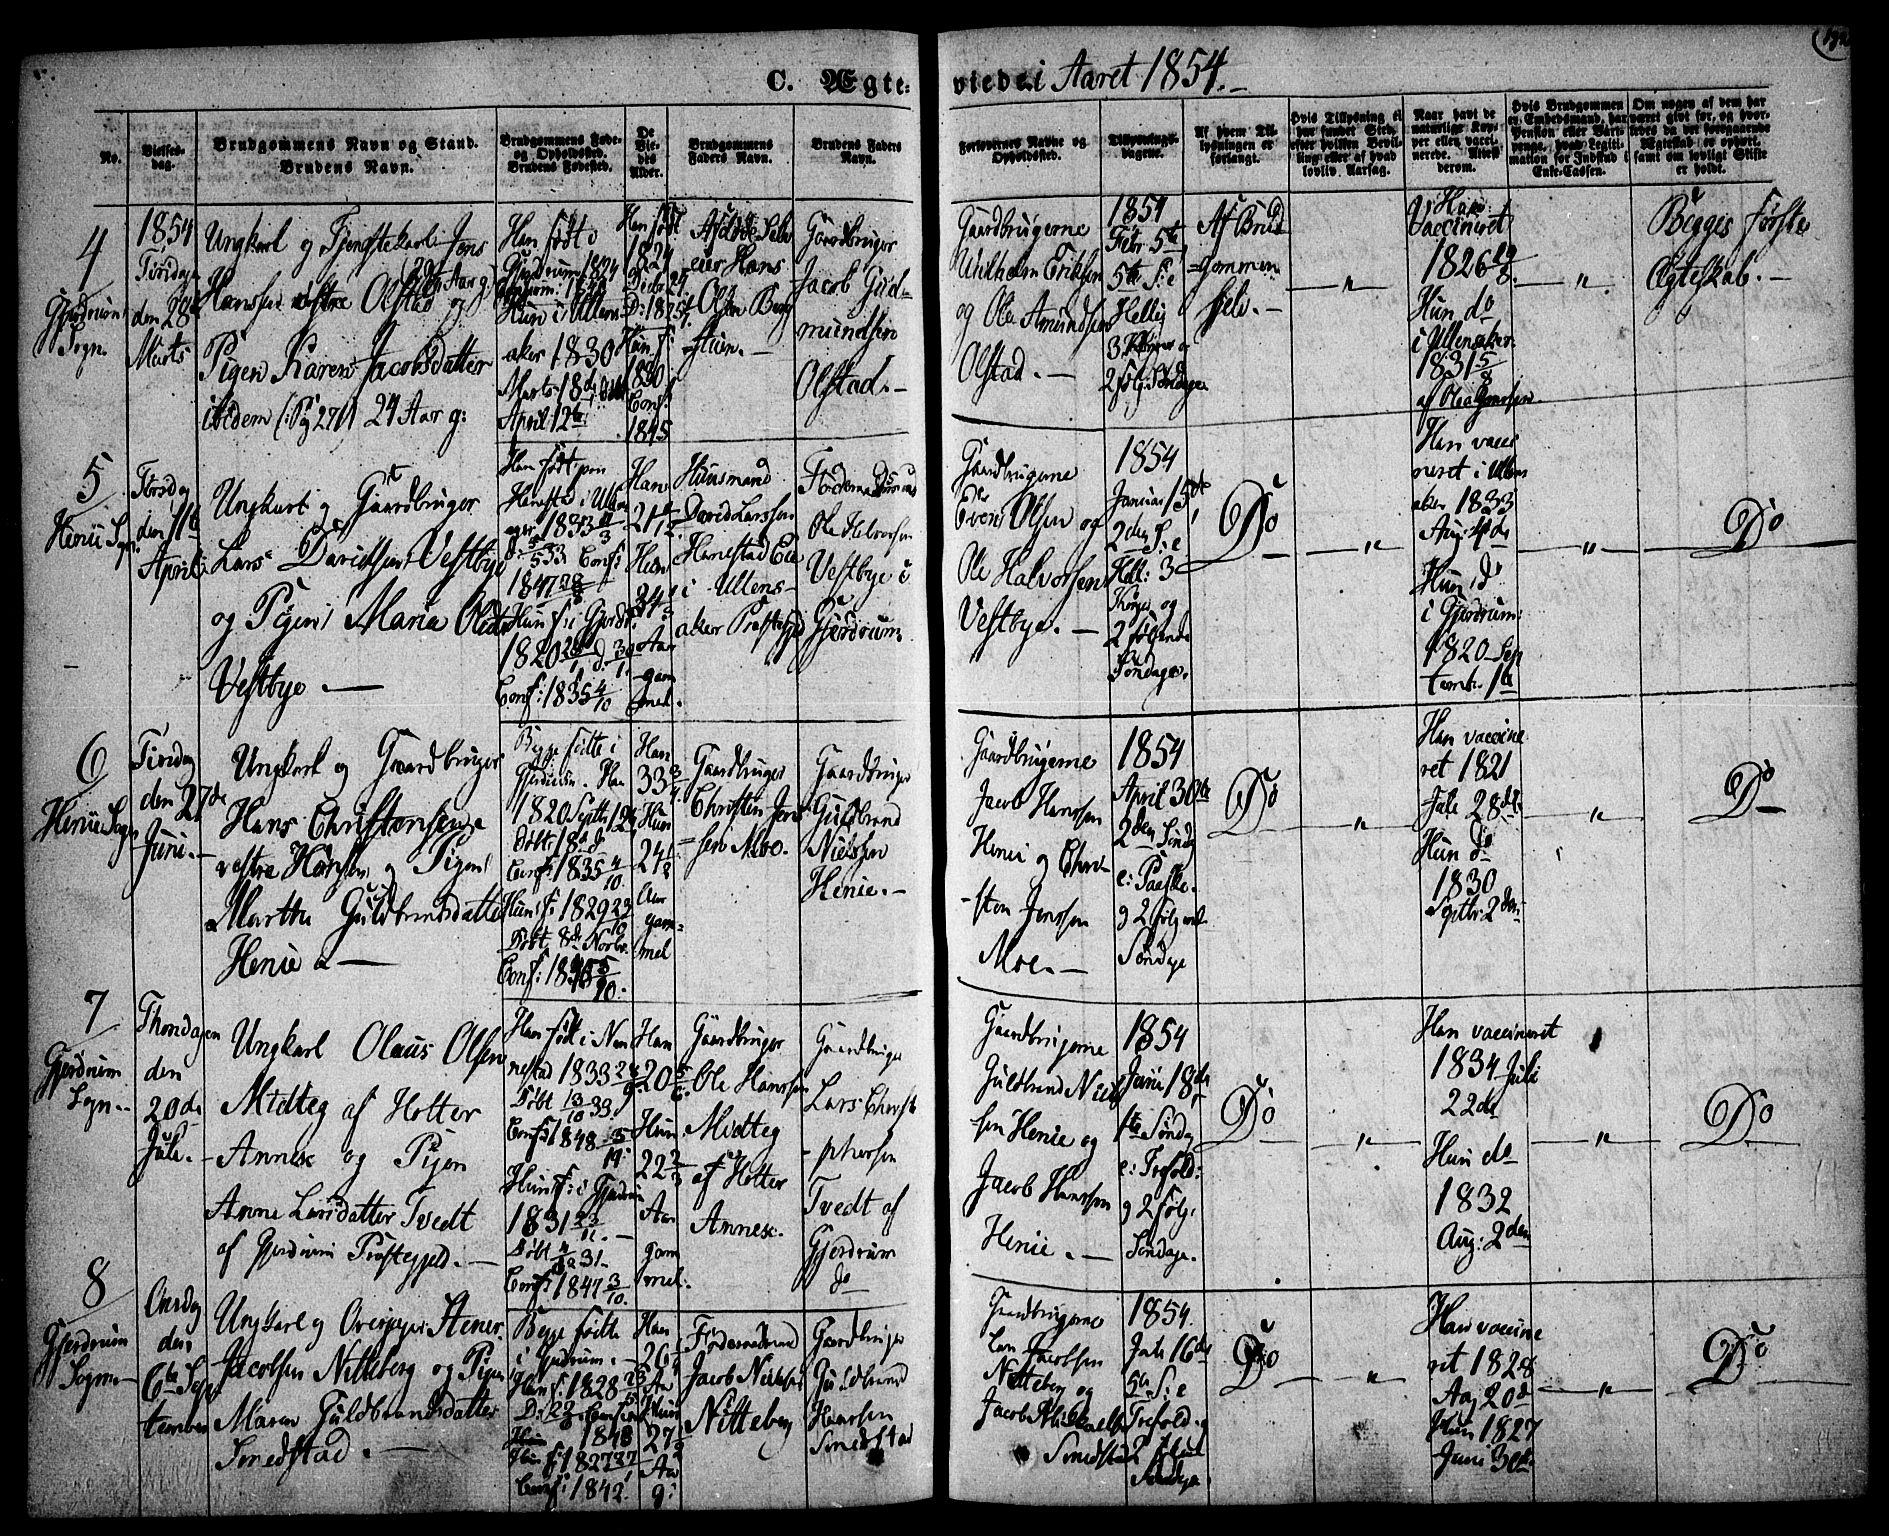 C. Ægte-
viede i Aaret 1854.
No.
Vielses-
dag.
Brudgommens Navn og Stand.
Brudens Navn.
Brudgommens Føde-
og Opholdssted.
Brudens Fødested.
De
Vie-
des
Alder.
Brudgommens
Faders Navn.
Brudens Faders
Navn.
Forlovernes Navne og
Opholdssted.
Tillysnings-
dagene.
Af hvem Til-
lysningen er
forlangt.
Naar havt de
naturlige Kop-
per eller vacci-
nerede.
Om nogen af dem har
været givt før, og hvor-
er holdt.
4
Gjerdrum
Sogn.
1854
Tirsdag
den 28de
Marts
Ungkarl og Tjenstekarl Jens
Hanssen vestre Olstad
og
Pigen Karen Jacobsdatter
ibidem 24 Aar g:
Han født i
Gjerdrum 1824
Hun i Ullens-
aker 1830
Marts 18de
April 12te
Han født
1824
Hun f:
1830
Conf:
1845
Hans
Olsen Berg
Gaardbruger
Jacob Gud-
mundsen
Olstad. -
Gaardbrugerne
Eriksen
og Ole Amundsen
Olstad. -
1854
Febr 5te
5te S: e
Hellig
3 Konger og
2 følg. Søndage
Af Brud
=gommen
selv. -
"
Han
Vaccineret
1826
Hun do
i Ullensaker
1831 5/8
"
Begges første
Ægteskab. -
5
Henie Sogn.
Torsdag
den 11te
April
Ungkarl og Gaardbruger
Lars Davidsen Vestbye
og Pigen Maria Olsdr
Vestbye. -
Han født paa
Hanestad i Ullens
aker 1833
Conf:
1847
Hun f: i Gjerdr:
1820
Conf: 1835 4/10
Han
Hun
Aar
gam
mel.
Huusmand
David Larssen
Hanestad Eie
i Ullens-
aker Præstegjeld
Ole Halvorsen
Vestbye i
Gjerdrum
Gaardbrugerne
Even Olsen og
Ole Halvorsen
Vestbye. -
1854
Januar 15de
2den S: e
Hell: 3
Konger og
2 følgende
Søndage.
Do
"
Han vacci
neret i Ullens
aker 1833
Aug: 4de
Hun do
i Gjerdrum
1820 Sep
tembr. 1te
"
Do
6
Henie Sogn
Tirsdag
den 27de
Juni. -
Ungkarl og Gaardbruger
Hans Christensen
vestre og Pigen
Martha Guldbrandsdatter
Henie
Begge fødte i
Gjerdrum. Han
1820 Septbr 12te
Døbt 18de do
Conf: 1835 4/10
Hun f: 1829 23/10
Døbt 8de Novbr
Han
33 3/4
Hun
24 1/2
Aar
gam=
mel
Gaardbruger
Christen Jens
=sen Moe.
Gaardbruger
Guldbrand
Nielsen
Henie. -
Gaardbrugerne
Jacob Hanssen
Henie og Chri-
-sten Jenssen
Moe. -
1854
April 30te
2den Søndag
e: Paaske.
og 2 følgende
Søndage
Do
"
Han vaccine
ret 1821
Jule 28de
Hun do
1830
Septbr: 2den
"
Do
7
Gjerdrum
Sogn.
Thorsdagen
den
20de
Juli. -
Ungkarl Olaus Olsen
Midteg af Holter
Annex og Pigen
Anne Larsdatter Tvedt
af Gjerdrum Præstegjeld. -
Han født i Nan
nestad 1833
Døbt 13/10 33.
Conf: 1848
Hun f: i Gjerdrum
1831 23/11. -
Conf: 1847 3/10.
Han
20 5/6
Hun
22 2/3
Aar
gam
mel.
Gaardbruger
Ole Hanssen
Midteg
af Holter
Annex.
Gaardbruger
Lars Christ
Tvedt af
Gjerdrum
do
Gaardbrugerne
Guldbrand Niel
sen Henie og
Jacob Hanssen
Henie. -
1854
Juni 18de
1ste Søndag
e: Trefold:
og 2 følg.
Søndage.
Do
"
Han vaccineret
1834 Juli
22de
Hun do
1832
Aug: 2den
"
Do
8
Gjerdrum
Sogn
Onsdag
den
6te Sep
tember
Ungkarl og Overjæger Stener
Jacobsen Nitteberg og Pigen
Maren Guldbrandsdatter
Smedstad. -
Begge fødte
i Gjerdrum. -
Han f: 1828
Hun f: 1827
Conf: 1842
Han
26
Aar
Hun
27
Aar
g:
Jacob
Nitteberg
Gaardbruger
Guldbrand
Hanssen
Smedstad
Gaardbrugerne
Jacobsen
Nitteberg og
Jacob
Smedstad
1854.
Jule 16de
5te S: e
Trefold: og
2 følgende
Søndage
Do
"
Han vaccine
ret 1828
Aug 20de
Hun 1827
Juni 30te
"
Do